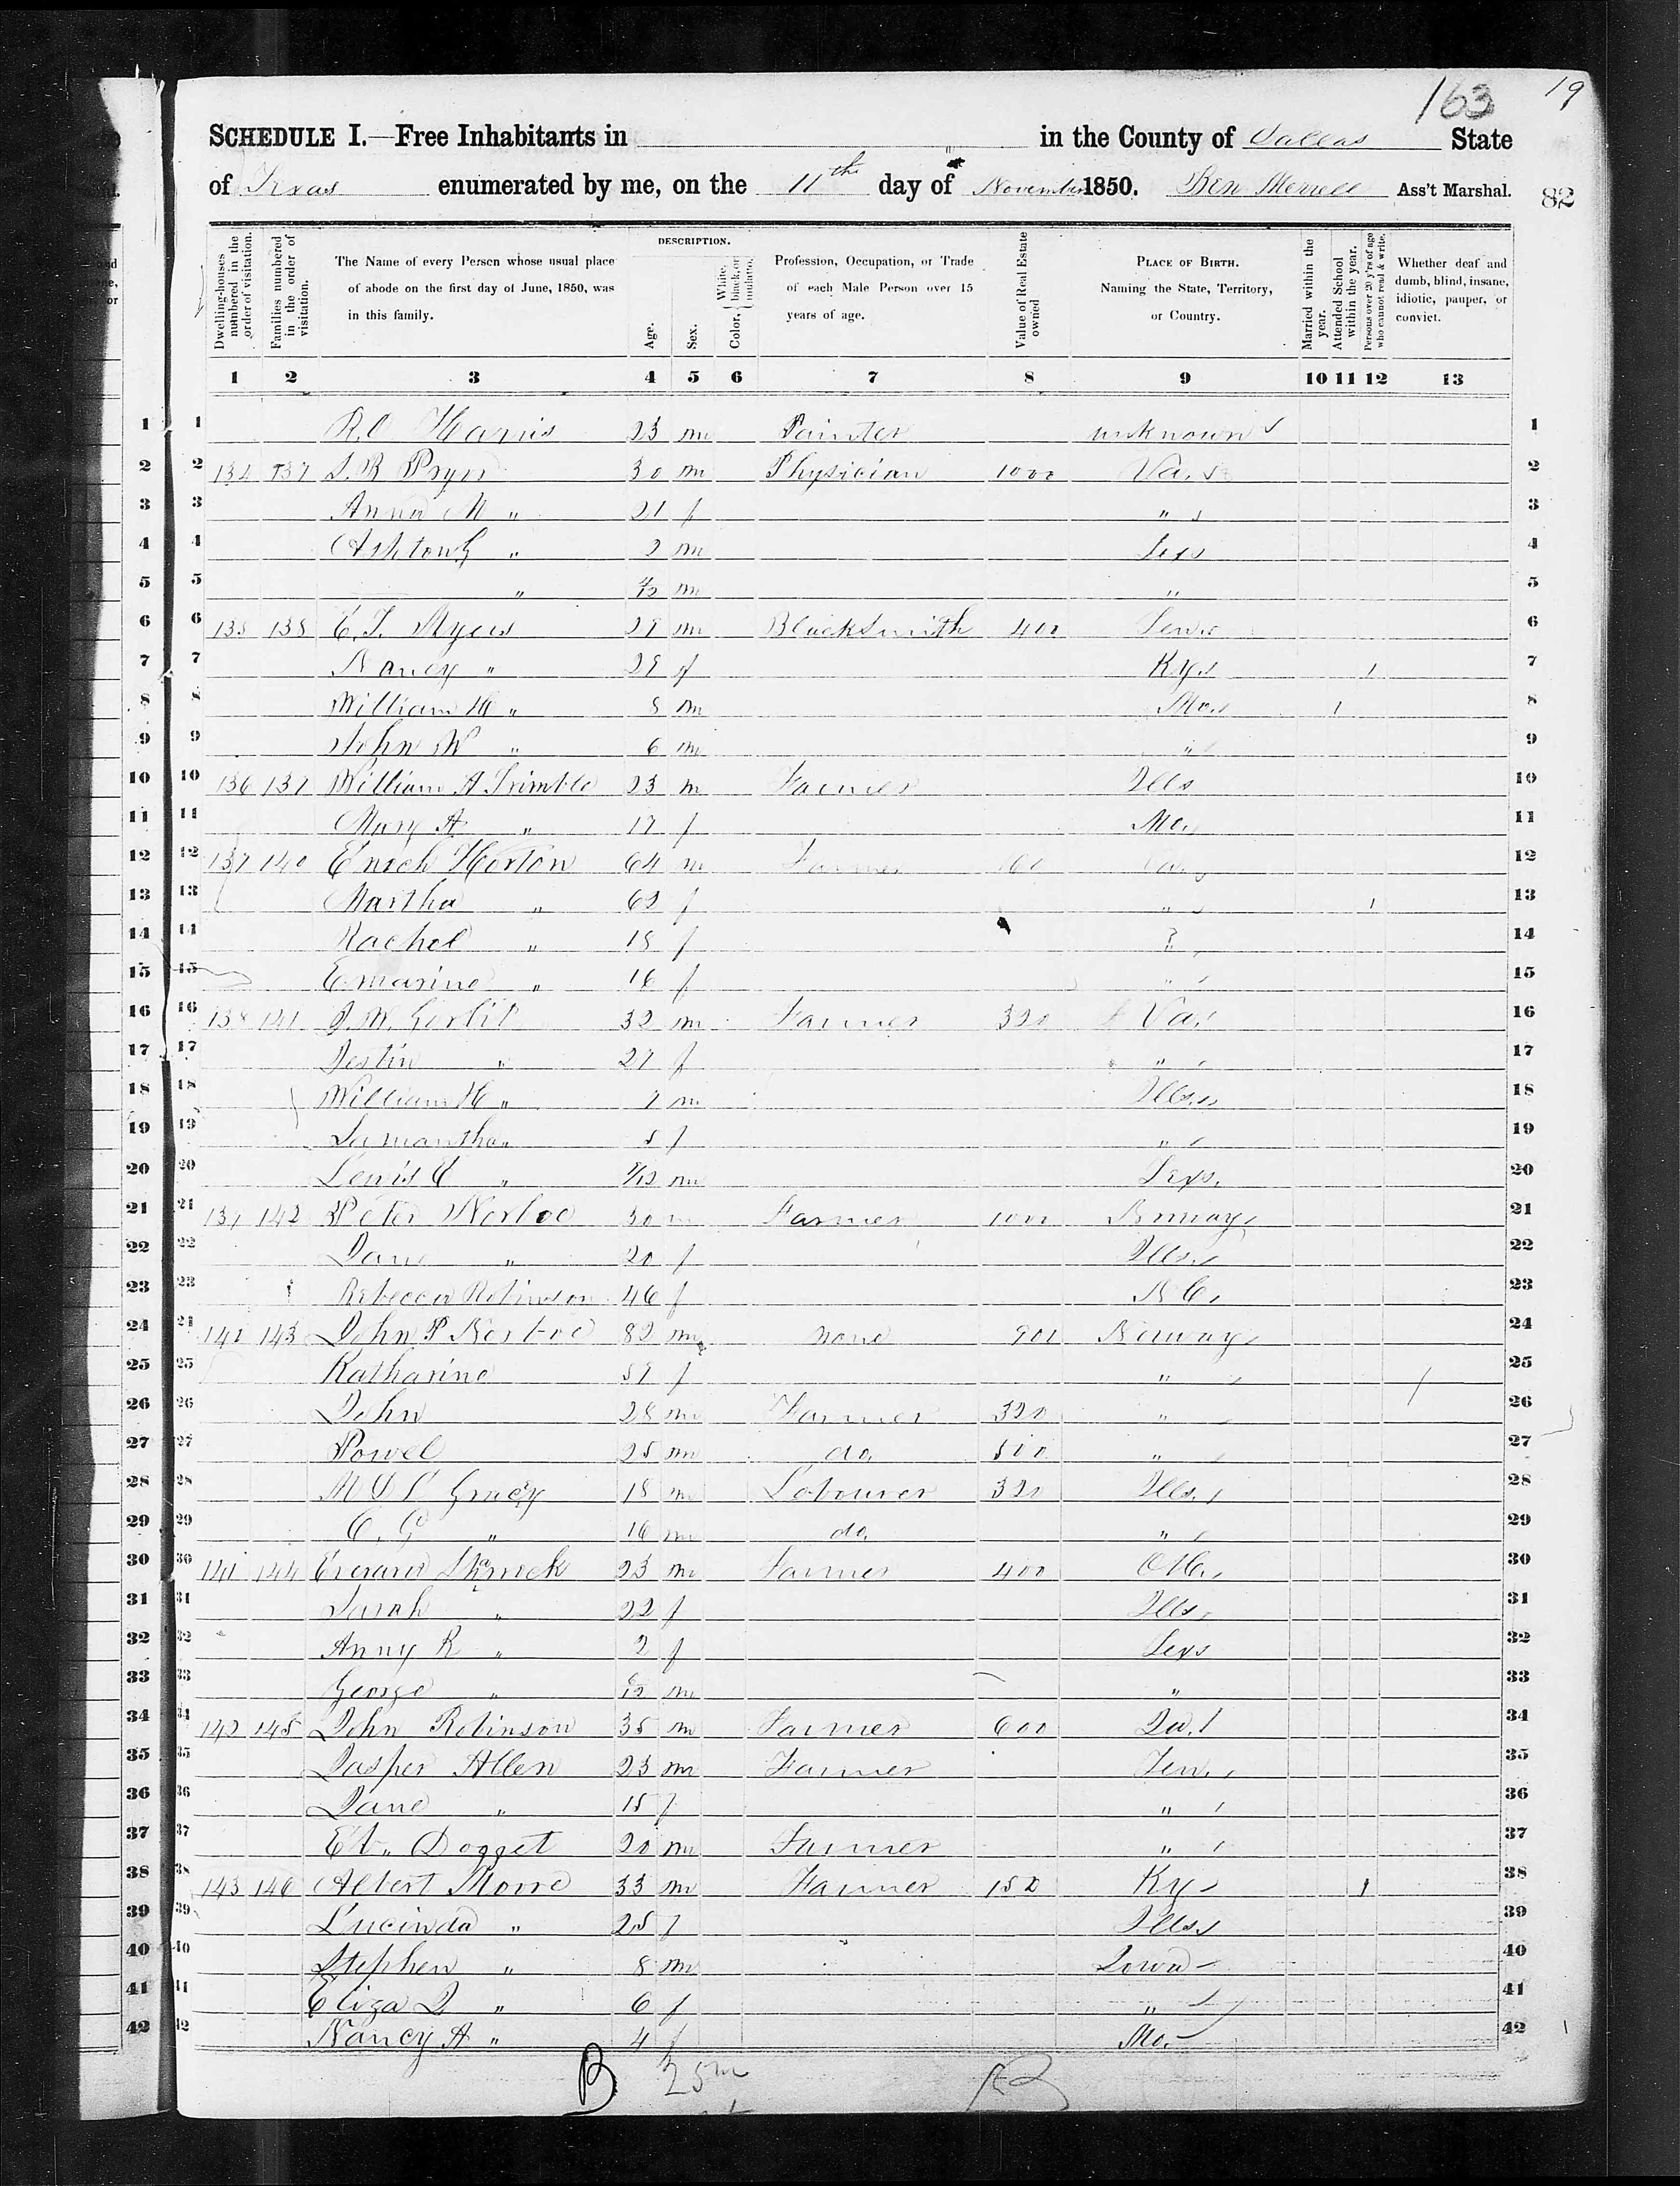 163 19
SCHEDULE I.—Free Inhabitants in " in the County of Dallas State
of Texas enumerated by me, on the 11th day of November 1850. Ben Merrell Ass't Marshal.
82
Dwelling-houses numbered in the order of visitation.
Families numbered in the order of visitation.
The Name of every Person whose usual place of abode on the first day of June, 1850, was in this family.
DESCRIPTION.
Age.
Sex.
Color, White, black, or mulatto.
Profession, Occupation, or Trade of each Male Person over 15 years of age.
Value of Real Estate owned
PLACE OF BIRTH. Naming the State, Territory, or Country.
Married within the year.
Attended School within the year.
Persons over 20 y'rs of age who cannot read & write.
Whether deaf and dumb, blind, insane, idiotic, pauper, or convict.
1 2 3 4 5 6 7 8 9 10 11 12 13
1 R.C Harris 23 m Painter unknown 1
2 134 137 S.B Pryor 30 m Physician 1000 Va. 2
3 Anna M " 21 f " 3
4 Ashton G " 2 m Texs 4
5 " m " 5
6 135 138 E.T. Myers 29 m Blacksmith 400 Ten. 6
7 Nancy " 29 f Ky. 1 7
8 William H " 8 m Mo. 1 8
9 John W " 6 m " 9
10 136 139 William A Trimble 23 m Farmer Ills 10
11 Mary A " 17 f Mo. 11
12 137 140 Enoch Horton 64 m Farmer Va. 12
13 Martha " 62 f " 1 13
14 Rachel " 18 f " 14
15 Emarine " 16 f " 15
16 138 141 J.W. 32 m Farmer 320 Va. 16
17 Jestin " 27 f " 17
18 William H " 7 m Ills. 18
19 Samantha " 5 f " 19
20 Lewis C " m Texs. 20
21 139 142 Peter Norboe 30 m Farmer 1000 Norway 21
22 Jane " 20 f Ills. 22
23 Rebecca Robinson 46 f N C. 23
24 140 143 John P Norboe 82 m none 900 Norway 24
25 Katharine 59 f " 25
26 John 28 m Farmer 320 " 26
27 Powel 25 m do. 500 " 27
28 Gracey 18 m Labourer 320 Ills. 28
29 C. G " 16 m do. " 29
30 141 144 Everard Sharrock 23 m Farmer 400 Oh. 30
31 Sarah " 22 f Ills. 31
32 Anny R " 2 f Texs 32
33 George " m " 33
34 142 145 John Robinson 35 m Farmer 600 34
35 Jasper Allen 23 m Farmer Ten. 35
36 Jane " 15 f " 36
37 Dogget 20 m Farmer " 37
38 143 146 Albert Morre 33 m Farmer 150 Ky 1 38
39 Lucinda " 25 f Ills. 39
40 Stephen " 8 m Iowa 40
41 Eliza J " 6 f " 41
42 Nancy A " 4 f Mo. 42
B 25m